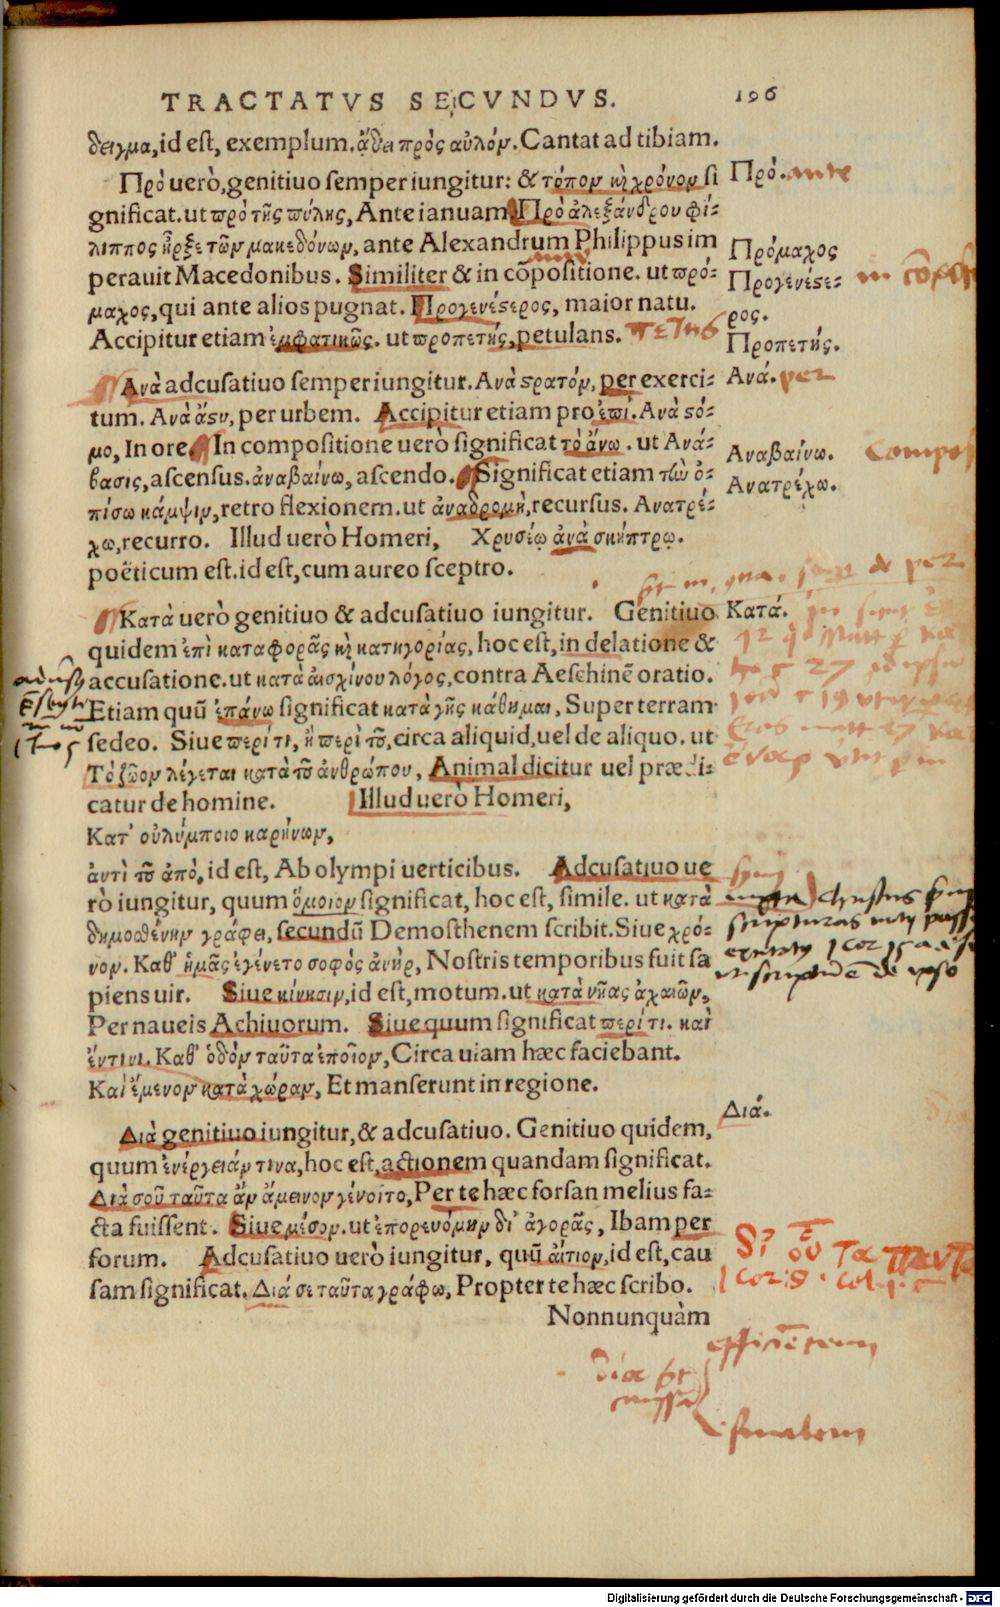 TRACTATVS SECVNDVS. 196
δειγμα, id est, exemplum. ᾄδει πρὸς αὐλόν. Cantat ad tibiam.
Πρὸ uerò, genitiuo semper iungitur: & τόπον κὴ χρόνον si
Πρό. ante
gnificat. ut πρὸ τῆς πύλης, Ante ianuam Πρὸ ἀλεξάνδρου φί-
λιππος ἦρξε τῶν μακεδόνων, ante Alexandrum Philippus im
Πρόμαχος
perauit Macedonibus. Similiter & in cōpositione. ut πρό-
Προγενέςε-
in
μαχος, qui ante alios pugnat. Προγενέςερος, maior natu.
ρος.
Accipitur etiam ἐμφατικῶς. ut προπετής, petulans.
Προπετής.
Ἀνὰ adcusatiuo semper iungitur. Ἀνὰ ςρατόν, per exerci-
Ἀνά. per
tum. Ἀνὰ ἄςυ, per urbem. Accipitur etiam pro ἐπι. Ἀνὰ ςό-
μα, In ore In compositione uerò significat τὸ ἄνω. ut Ἀνά-
Ἀναβαίνω.
βασις, ascensus. ἀναβαίνω, ascendo. Significat etiam τὼ ὀ-
Ἀνατρέχω.
πίσω κάμψιν, retro flexionem. ut ἀναδρομὴ, recursus. Ἀνατρέ-
χω, recurro. Illud uerò Homeri, Χρυσέῳ ἀνὰ σκήπτρῳ.
poëticum est. id est, cum aureo sceptro.
Κατὰ uerò genitiuo & adcusatiuo iungitur. Genitiuo
Κατά.
quidem ἐπὶ καταφορᾶς κὴ κατηγορίας, hoc est, in delatione &
accusatione. ut κατὰ αἰσχίνου λόγος, contra Aeschinē oratio.
Etiam quū ἐπάνω significat κατὰ γῆς κάθημαι, Super terram
sedeo. Siue περί τι, ἢ περὶ τȣ̃, circa aliquid, uel de aliquo. ut
Τὸ ζῶον λέγεται κατὰ τȣ̃ ἀνθρώπου, Animal dicitur uel prædi-
catur de homine. Illud uerò Homeri,
Κατ' οὐλύμποιο καρήνων,
ἀντὶ τȣ̃ ἀπὸ, id est, Ab olympi uerticibus. Adcusatiuo ue
rò iungitur, quum ὅμοιον significat, hoc est, simile. ut κατὰ
δημοσθένην γράφει, secundū Demosthenem scribit. Siue χρό-
νον. Καθ' ἡμᾶς ἐγένετο σοφὸς ἀνὴρ, Nostris temporibus fuit sa
piens uir. Siue κίνησιν, id est, motum. ut κατὰ νῆας ἀχαιῶν,
Per naueis Achiuorum. Siue quum significat περί τι. καὶ
ἔν τινι. Καθ' ὁδὸν ταῦτα ἐποίουν, Circa uiam hæc faciebant.
Καὶ ἔμενον κατὰ χώραν, Et manserunt in regione.
Διά.
Διὰ genitiuo iungitur, & adcusatiuo. Genitiuo quidem,
quum ἐνέργειάν τινα, hoc est, actionem quandam significat.
Διὰ σοῦ ταῦτα ἂν ἄμεινον γένοιτο, Per te hæc forsan melius fa-
cta fuissent. Siue μέσον. ut ἐπορευόμην δι' ἀγορᾶς, Ibam per
forum. Adcusatiuo uerò iungitur, quū αἴτιον, id est, cau
sam significat. Διά σε ταῦτα γράφω, Propter te hæc scribo.
δι οὗ τὰ πάντα
1 cor: 8.
Nonnunquàm
efficiētem
finalem
Digitalisierung gefördert durch die Deutsche Forschungsgemeinschaft - DFG